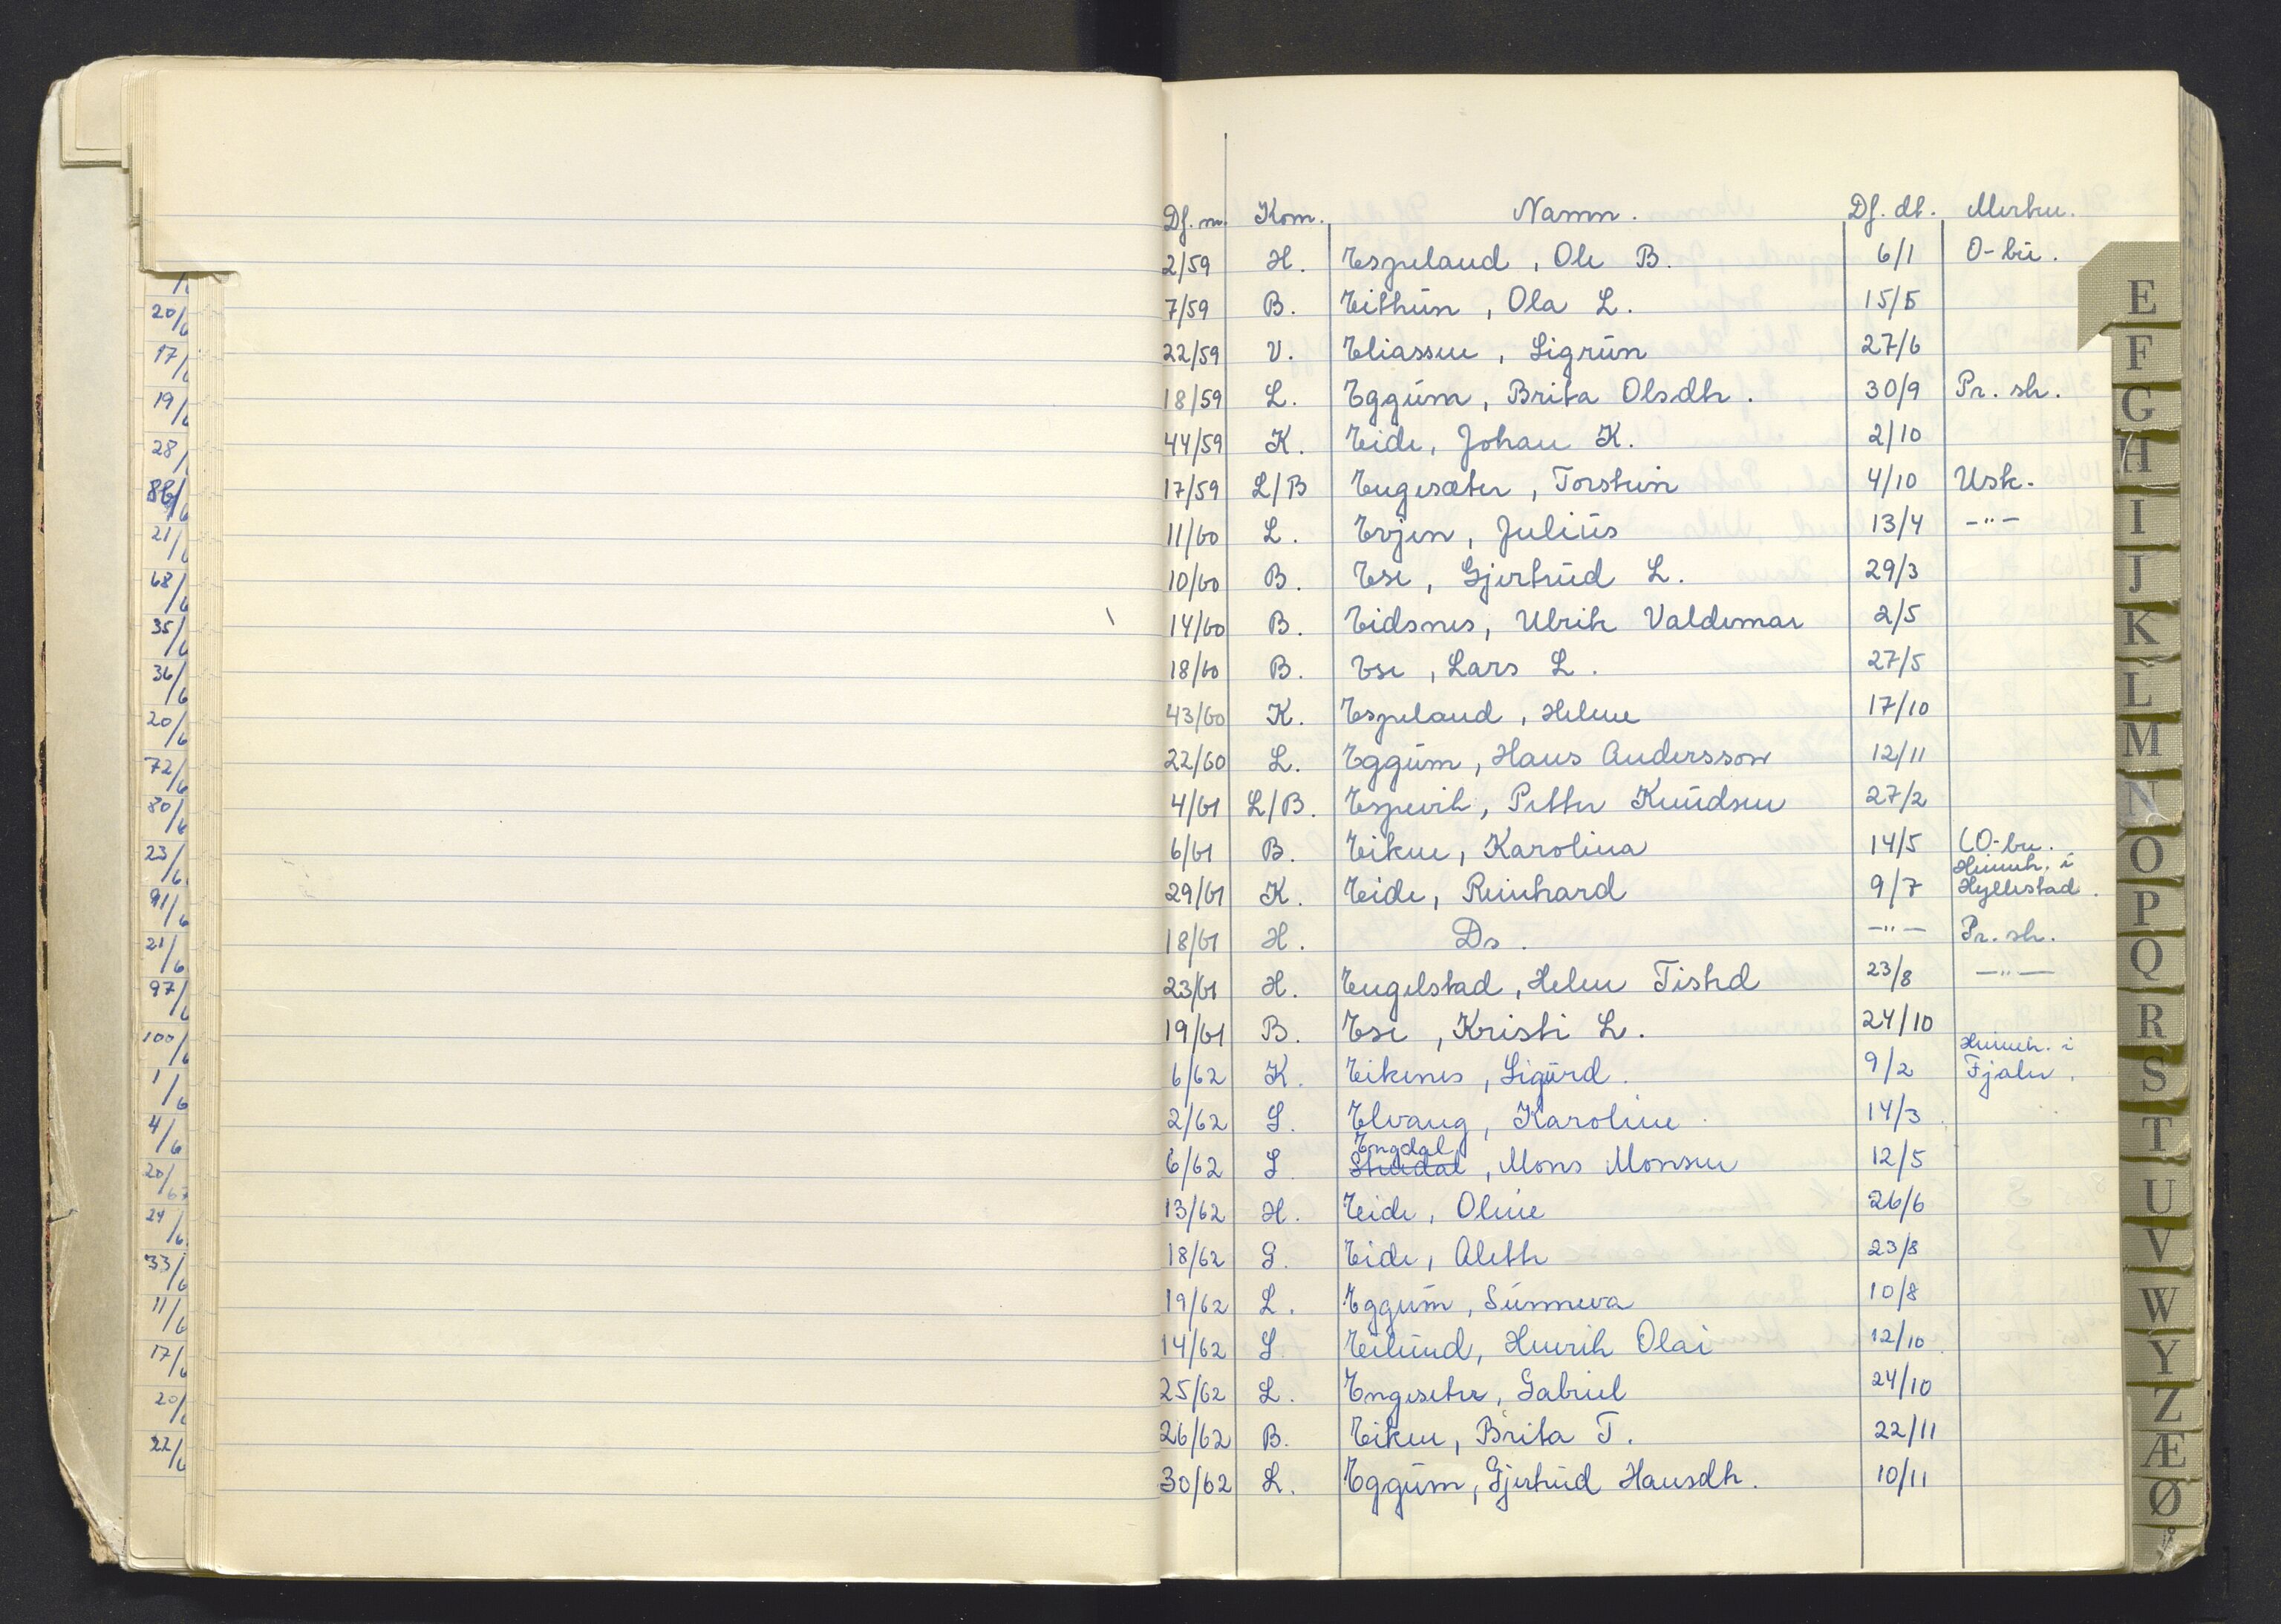 20/6
17/6
19/6
28/
86/6
21/6
68/6
35/6
36/6
20/6
72/6
80/6
23/6
91/6
21/6
97/6
100/6
1/6
4/6
20/67
24/6
33/6
11/6
17/6
20/6
22/6
Df. nr. Kom. Namn. Df. dt. Merkn.
2/59 H. Espeland, Ole B. 6/1 O-bu.
7/59 B. Eithun, Ola L. 15/5
22/59 V. Eliassen, Sigrun 27/6
18/59 L. Eggum, Brita Olsdtr. 30/9 Pr. sk.
44/59 K. Eide, Johan K. 2/10
17/59 L/B Engesæter, Torstein 4/10 Usk.
11/60 L. Evjen, Julius 13/4 -"-
10/60 B. Ese, Gjertrud L. 29/3
14/60 B. Eidsnes, Ulrik Valdemar 2/5
18/60 B. Ese, Lars L. 27/5
43/60 K. Espeland, Helene 17/10
22/60 L. Eggum, Hans Andersson 12/11
4/61 L/B. Espevik, Petter Knudsen 27/2
6/61 B. Eiken, Karolina 14/5 (O-bu.
Heimeh. i
29/61 K. Eide, Reinhard 9/7 Hyllestad.
18/61 H. Ds. -"- Pr. sk.
23/61 H. Engelstad, Helen Tishd 23/8 -"-
19/61 B. Ese, Kristi L. 24/10
Heimeh. i
6/62 K. Eikenes, Sigurd. 9/2 Fjaler.
2/62 S. Elvang, Karoline 14/3
Engdal
6/62 S. Stendal, Mons Monsen 12/5
13/62 H. Eide, Oline 26/6
18/62 G. Eide, Aleth 23/8
19/62 L. Eggum, Sunneva 10/8
14/62 S. Eilund, Henrik Olai 12/10
25/62 L. Engeseter, Gabriel 24/10
26/62 B. Eiken, Brita T. 22/11
30/62 L. Eggum, Gjertrud Hansdtr. 10/11
E
F
G
H
I
J
K
L
M
N
O
P
Q
R
S
T
U
V
W
Y
Z
Æ
Ø